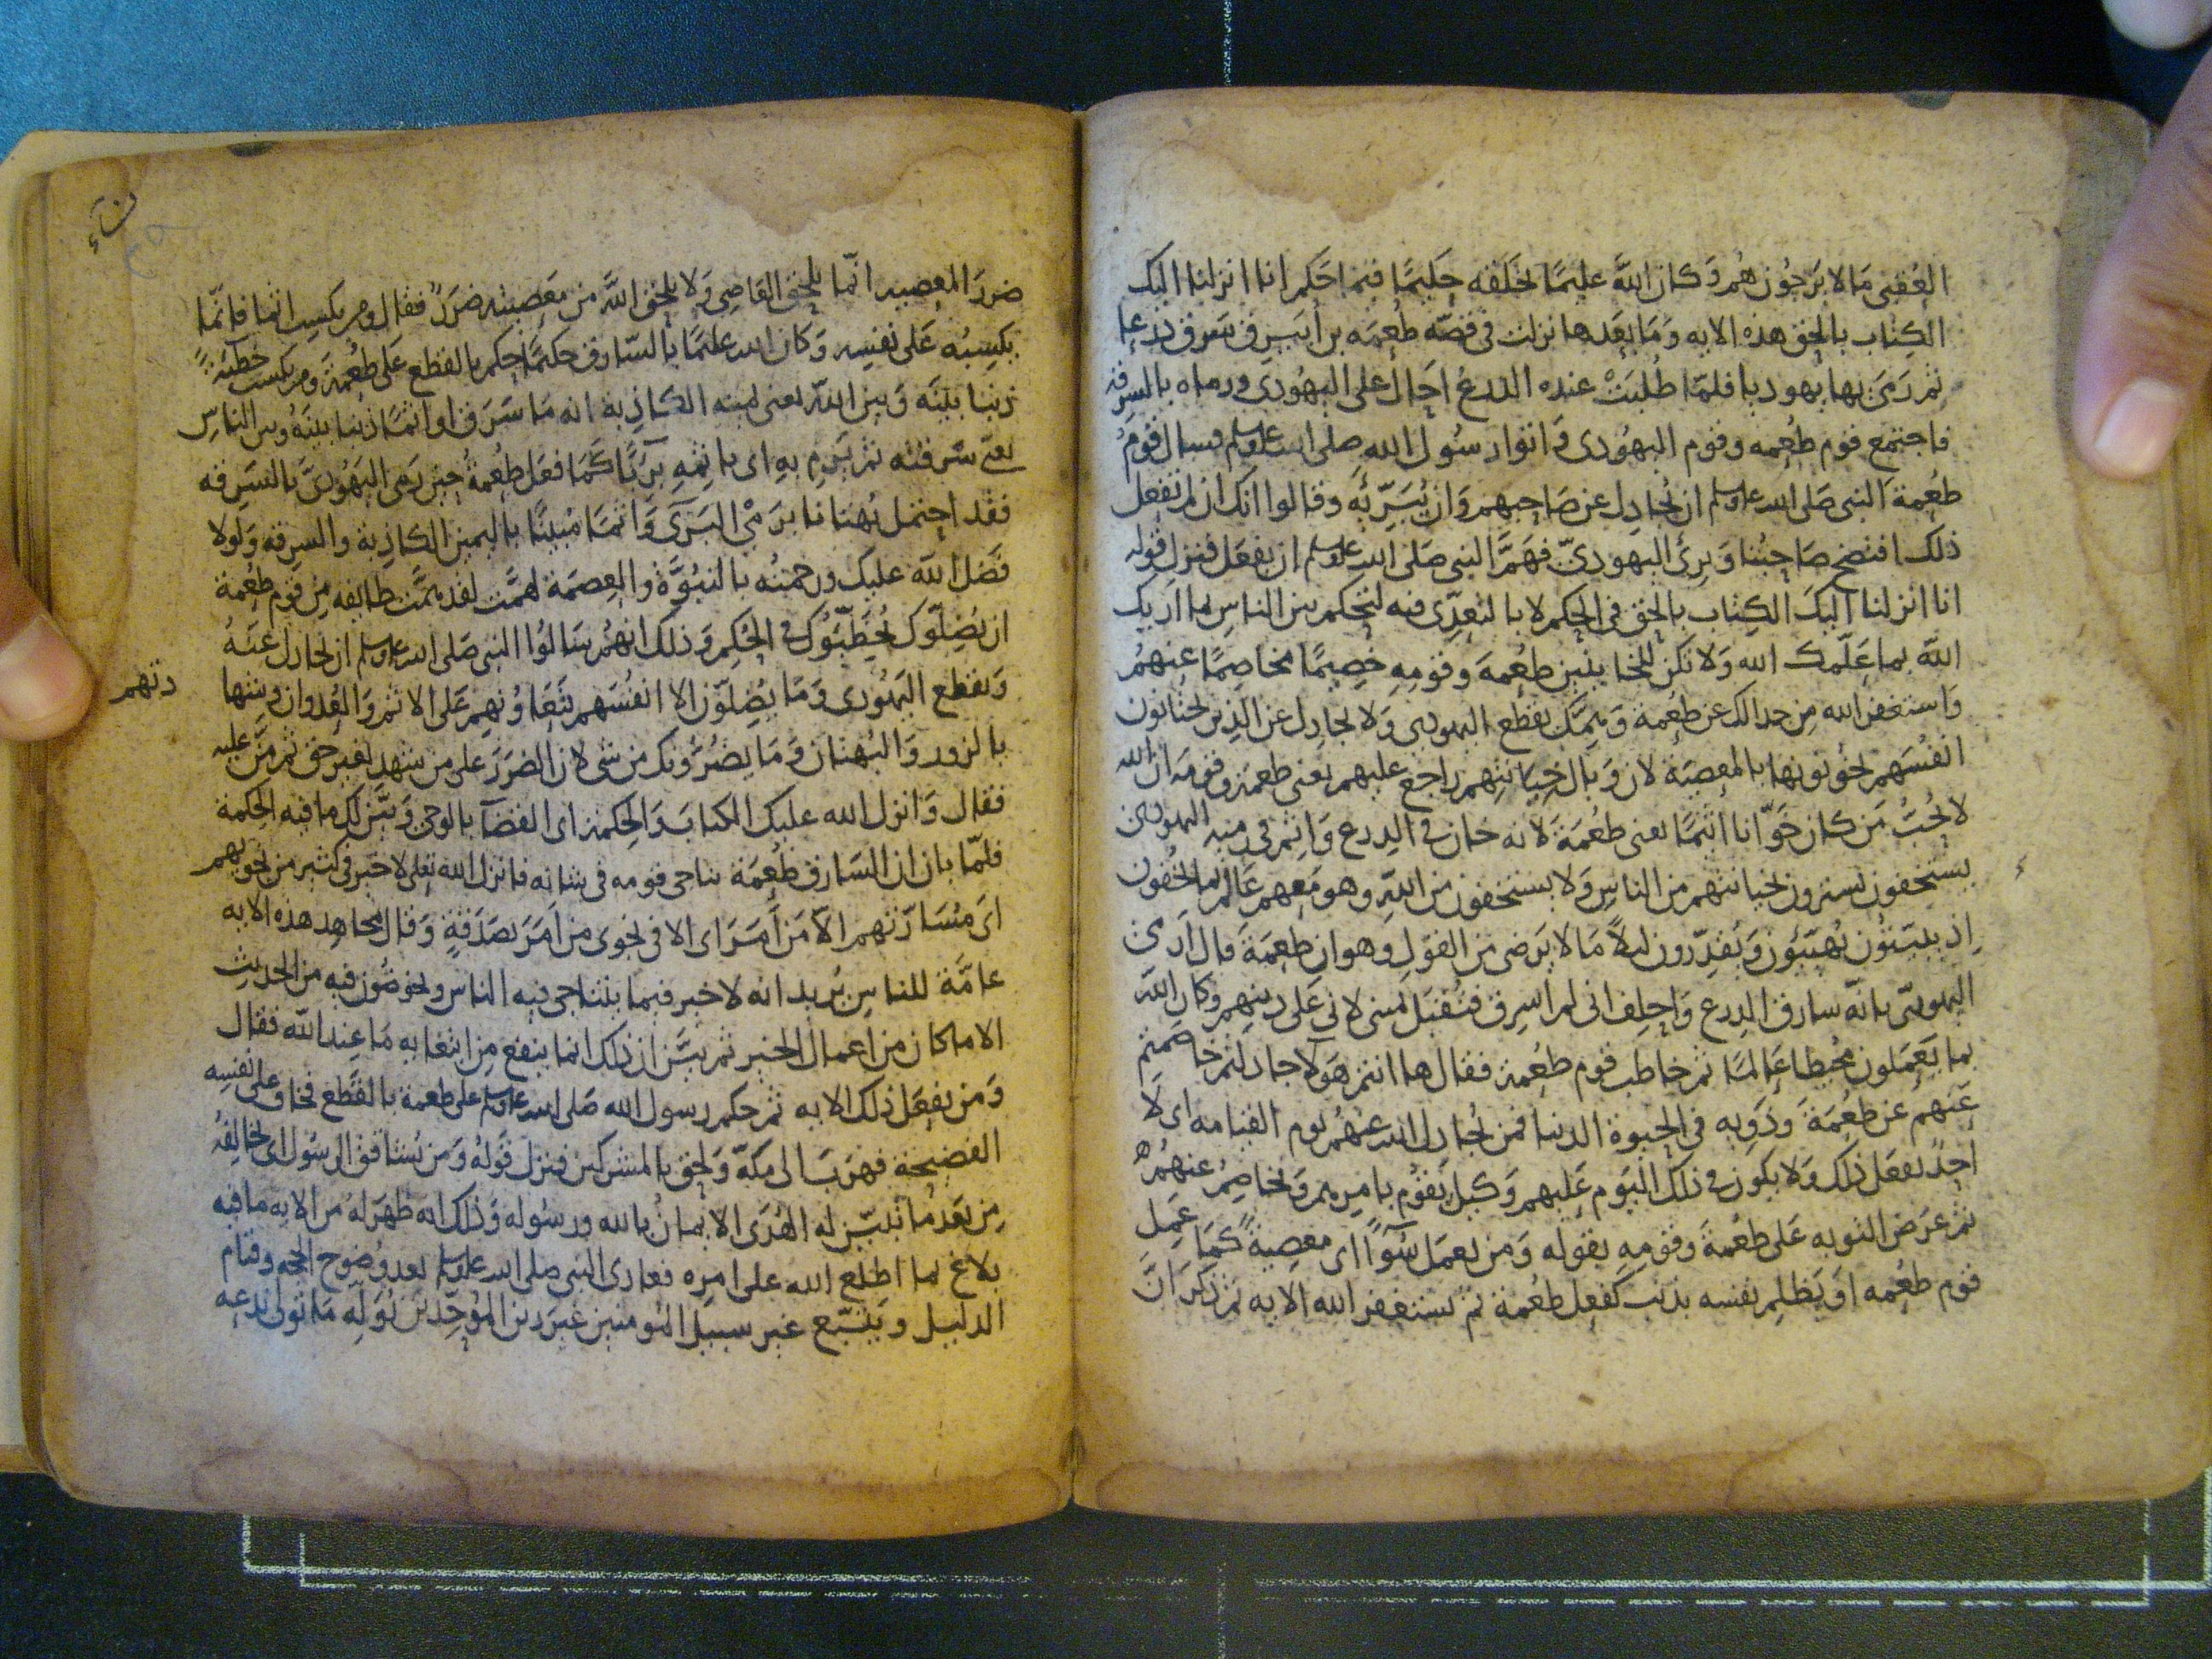 العُقبى مَا لا يَرجُون هُم وَكان اللهُ عليمًا بخَلقه حَكيمًا فيما حَكم انا انزلنا اليك
الكِتاب بالحق هذه الايه وَمَا بعَدها نزلت في قصّه طُعمَه بن أُبَيرِق سَرق درعا
ثم رَمىَ بها يهوديا فلمّا طُلبَتْ عنده الدرعُ احَال على اليهُودى ورماه بالسرقه
فاجتمَع قوم طعُمه وقوم اليهوُدى وَاتوا رسُول الله صلى الله عليه وسلم فسال قومُ
طعُمة النبى صَلى الله عليه وسلم ان يُجادِل عن صَاحِبهم وَان يُبَرِّيَه وقالوا انك ان لم تفعل
ذلك افتضح صَاحِبُنا وَبرِئَ اليهودىّ فهَمَّ النبى صَلى الله عليه وسلم ان يفعَل فنزل قوله
انا انزلنا اليكَ الكِتاب بالحَق في الحِكم لا بالتعدِّى فيه لتحكم بين الناسِ بما اَرَيك
اللهُ بما عَلّمك الله وَلا تكن للخاينين طعُمةَ وقومِهِ خصِيمًا مخاصِمًا عنهُم
وَاستغفر الله مِن جدالك عن طعُمة وَهِمَّك بقطع اليهودى وَلا تجادِل عن الذين يختانون
انفُسَهم يخُونونها بالمعصِيَة لان وَبال خِيَانتهم راجع عليهم يعنى طعمَة وقومَه ان الله
لا يُحِبُّ مَن كان خَوّانا اثيمًا يعنى طعُمَة لانه خان في الدِرع وَاثم في رميه اليهودى
يستخفون يستترون بخيانتهم من الناسِ وَلا يستخفون من اللهِ وهو مَعهم عَالم بما يخُفون
اِذ يبيّتوُن يُهَيّئون وَيُقدِّرون ليلًا مَا لا يَرضى من القَول وهو ان طعِمَةَ قال اَرمى
اليهودىّ بانّه سارق الدِرع وَاحِلف انى لم اسرق فتُقبَل يمينى لانى عَلى دينهِم وكان الله
بما يَعمَلون مُحيطا عَالمًا ثم خاطب قوم طعُمة فقال ها انتم هَولا جادلتم خاصَمتم
عَنهم عن طعُمَة وَذَوِيه في الحيوة الدنيا فمن يُجادل الله عنهُم يوم القيامه اى لَا
احدٌ يفعَل ذلك وَلا يكون في ذلك اليَوم عَليهم وَكيلٌ يَقوُم بامرِهم وَيخاصِمُ عنهُم
ثم عَرض التوبه عَلى طعُمة وقومِهِ بقَوله وَمَن يعمَل سُوآً اى معصِيَةً كَمَا عَمِل
قوم طعُمه اوَ يَظلِم نفسه بذنب كفعلِ طعُمة ثم يستغفر الله الايه ثم ذكرَ انَّ
ضررَ المعصِيه انّما يلحَق العَاصِى وَلا يلحَق اللهَ من معَصِيَته ضرَرٌ فقال ومن يكسِب اثما فانّما
يكسِبُه عَلى نفسِه وَكان الله عليمًا بالسّارق حكيمًا حِكم بالقطع عَلى طعُمة ومن يكسب خطيئةً
ذنبا بينَه وَبين اللهِ يعنى يمينه الكاذبة انه مَا سَرَق او اثمًا ذنبا بينَهُ وبين الناسِ
يعنى سَرقته ثم يَرمِ بهِ اى باثمِهِ بَريًّا كَمَا فعَل طعُمةُ حين رَمى اليَهُودىَّ بالسَرِقه
فقد احتمل بُهتانا برَمْى البَرى وَاثمًا مُبينًا باليمين الكاذِبة والسرقه وَلولا
فَضل اللهِ عليك ورحمتُه بالنبُوَّة والعِصمَة لهمَّت لقد همَّت طايفه مِن قوم طعُمة
ان يُضِلّوك يُخطِّئوُك في الحُكم وَذلك انهُم سَالُوا النبى صَلى الله عليه وسلم ان يجادل عَنهُ
وَيقطع اليهُودى وَمَا يُضِلّون الا انفُسَهم بتَعَاوُنهِم عَلى الاثم وَالعُدوان وشها
دتهم
بالزور وَالبُهتان وَمَا يَضُرُّونك من شى لان الضَرَرَ على من شهد بغير حق ثم مَنَّ عليه
فقال وَانزل الله عليك الكتابَ وَالحِكمة اى القضآ بالوحى وَبيّن لك ما فيه الحِكمة
فلمّا بان ان السَارق طعُمَة تناجى قومه في شانه فانزل الله تعلى لا خير في كثير من نجويهم
اى مُسَارّتهم الّا مَن اَمَرَ اى الا في نجوى من اَمَرَ بصَدَقةٍ وَقال مجاهد هذه الايه
عامَّة للناسِ يُريد انه لا خير فيما يتناجى فيه الناس ويخوضُون فيه من الحديث
الا ما كان من اعمال الخير ثم بيّن ان ذلك انما ينفع مِن ابتغا به مَا عِند الله فقال
وَمن يفعَل ذلك الايه ثم حكم رسول الله صَلى الله عليه وسلم على طعمة بالقَطع فخاف على نفسِه
الفضيحة فهرَبَ الى مَكةّ وَلحِق بالمشركين فنزل قَولهُ وَمَن يُشاقق الرسُول اى يخالِفُه
مِن بَعَد مَا تَبيَّن له الهُدَى الايمانُ بالله ورسُوله وَذلك انه ظهَرَ لهُ من الايه ما فيه
بلاغ بما اطلع الله على امرِه فعادى النبى صلى الله عليه وسلم بعد وُضوح الحجه وقيام
الدليل ويتّبع غير سبيل المُومنين غيَر دين المُوحِّدين نُوَلِّهِ مَا تولى ندعه